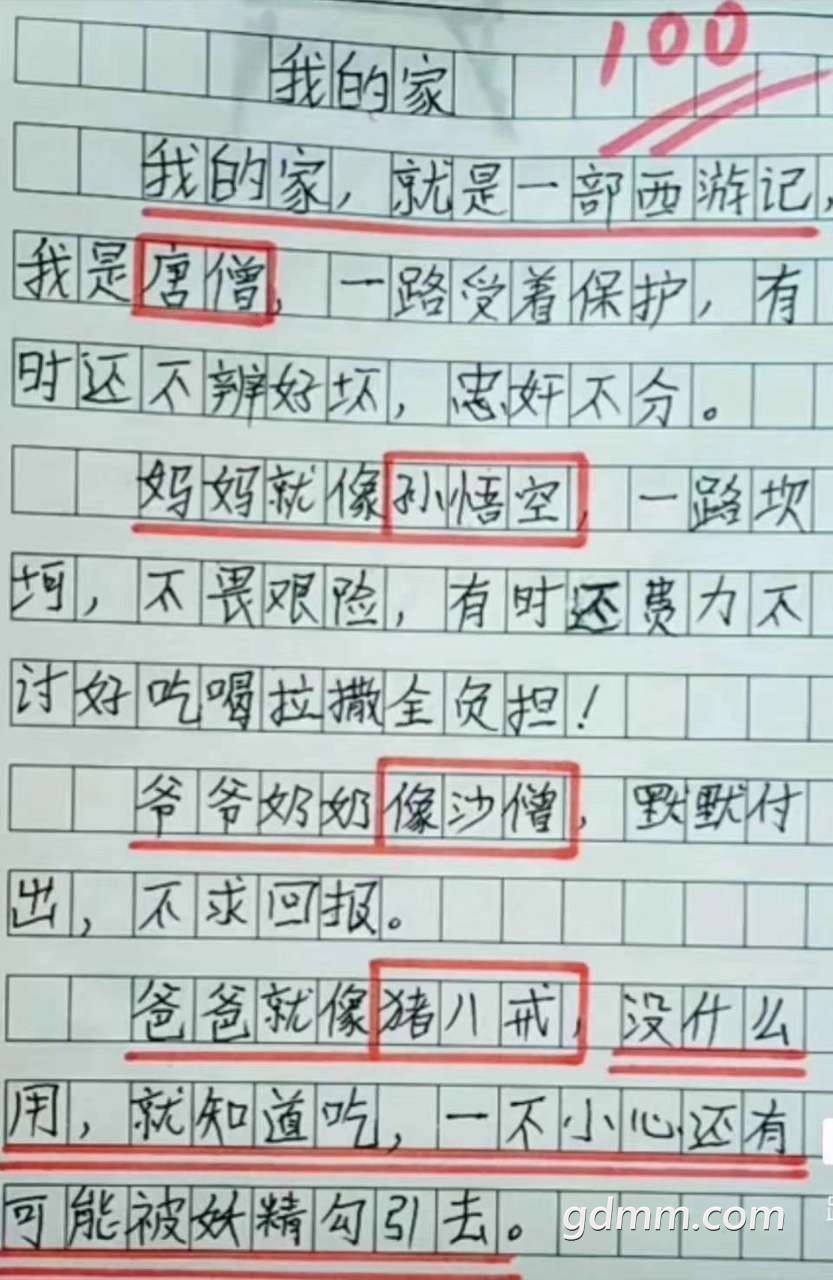 100
我的家
我的家，就是一部西游记，
我是唐僧，一路受着保护，有
时还不辨好坏，忠奸不分。
妈妈就像孙悟空，一路坎
坷，不畏艰险，有时还费力不
讨好吃喝拉撒全负担！
爷爷奶奶像沙僧，默默付
出，不求回报。
爸爸就像猪八戒，没什么
用，就知道吃，一不小心还有
可能被妖精勾引去。
gdmm.com